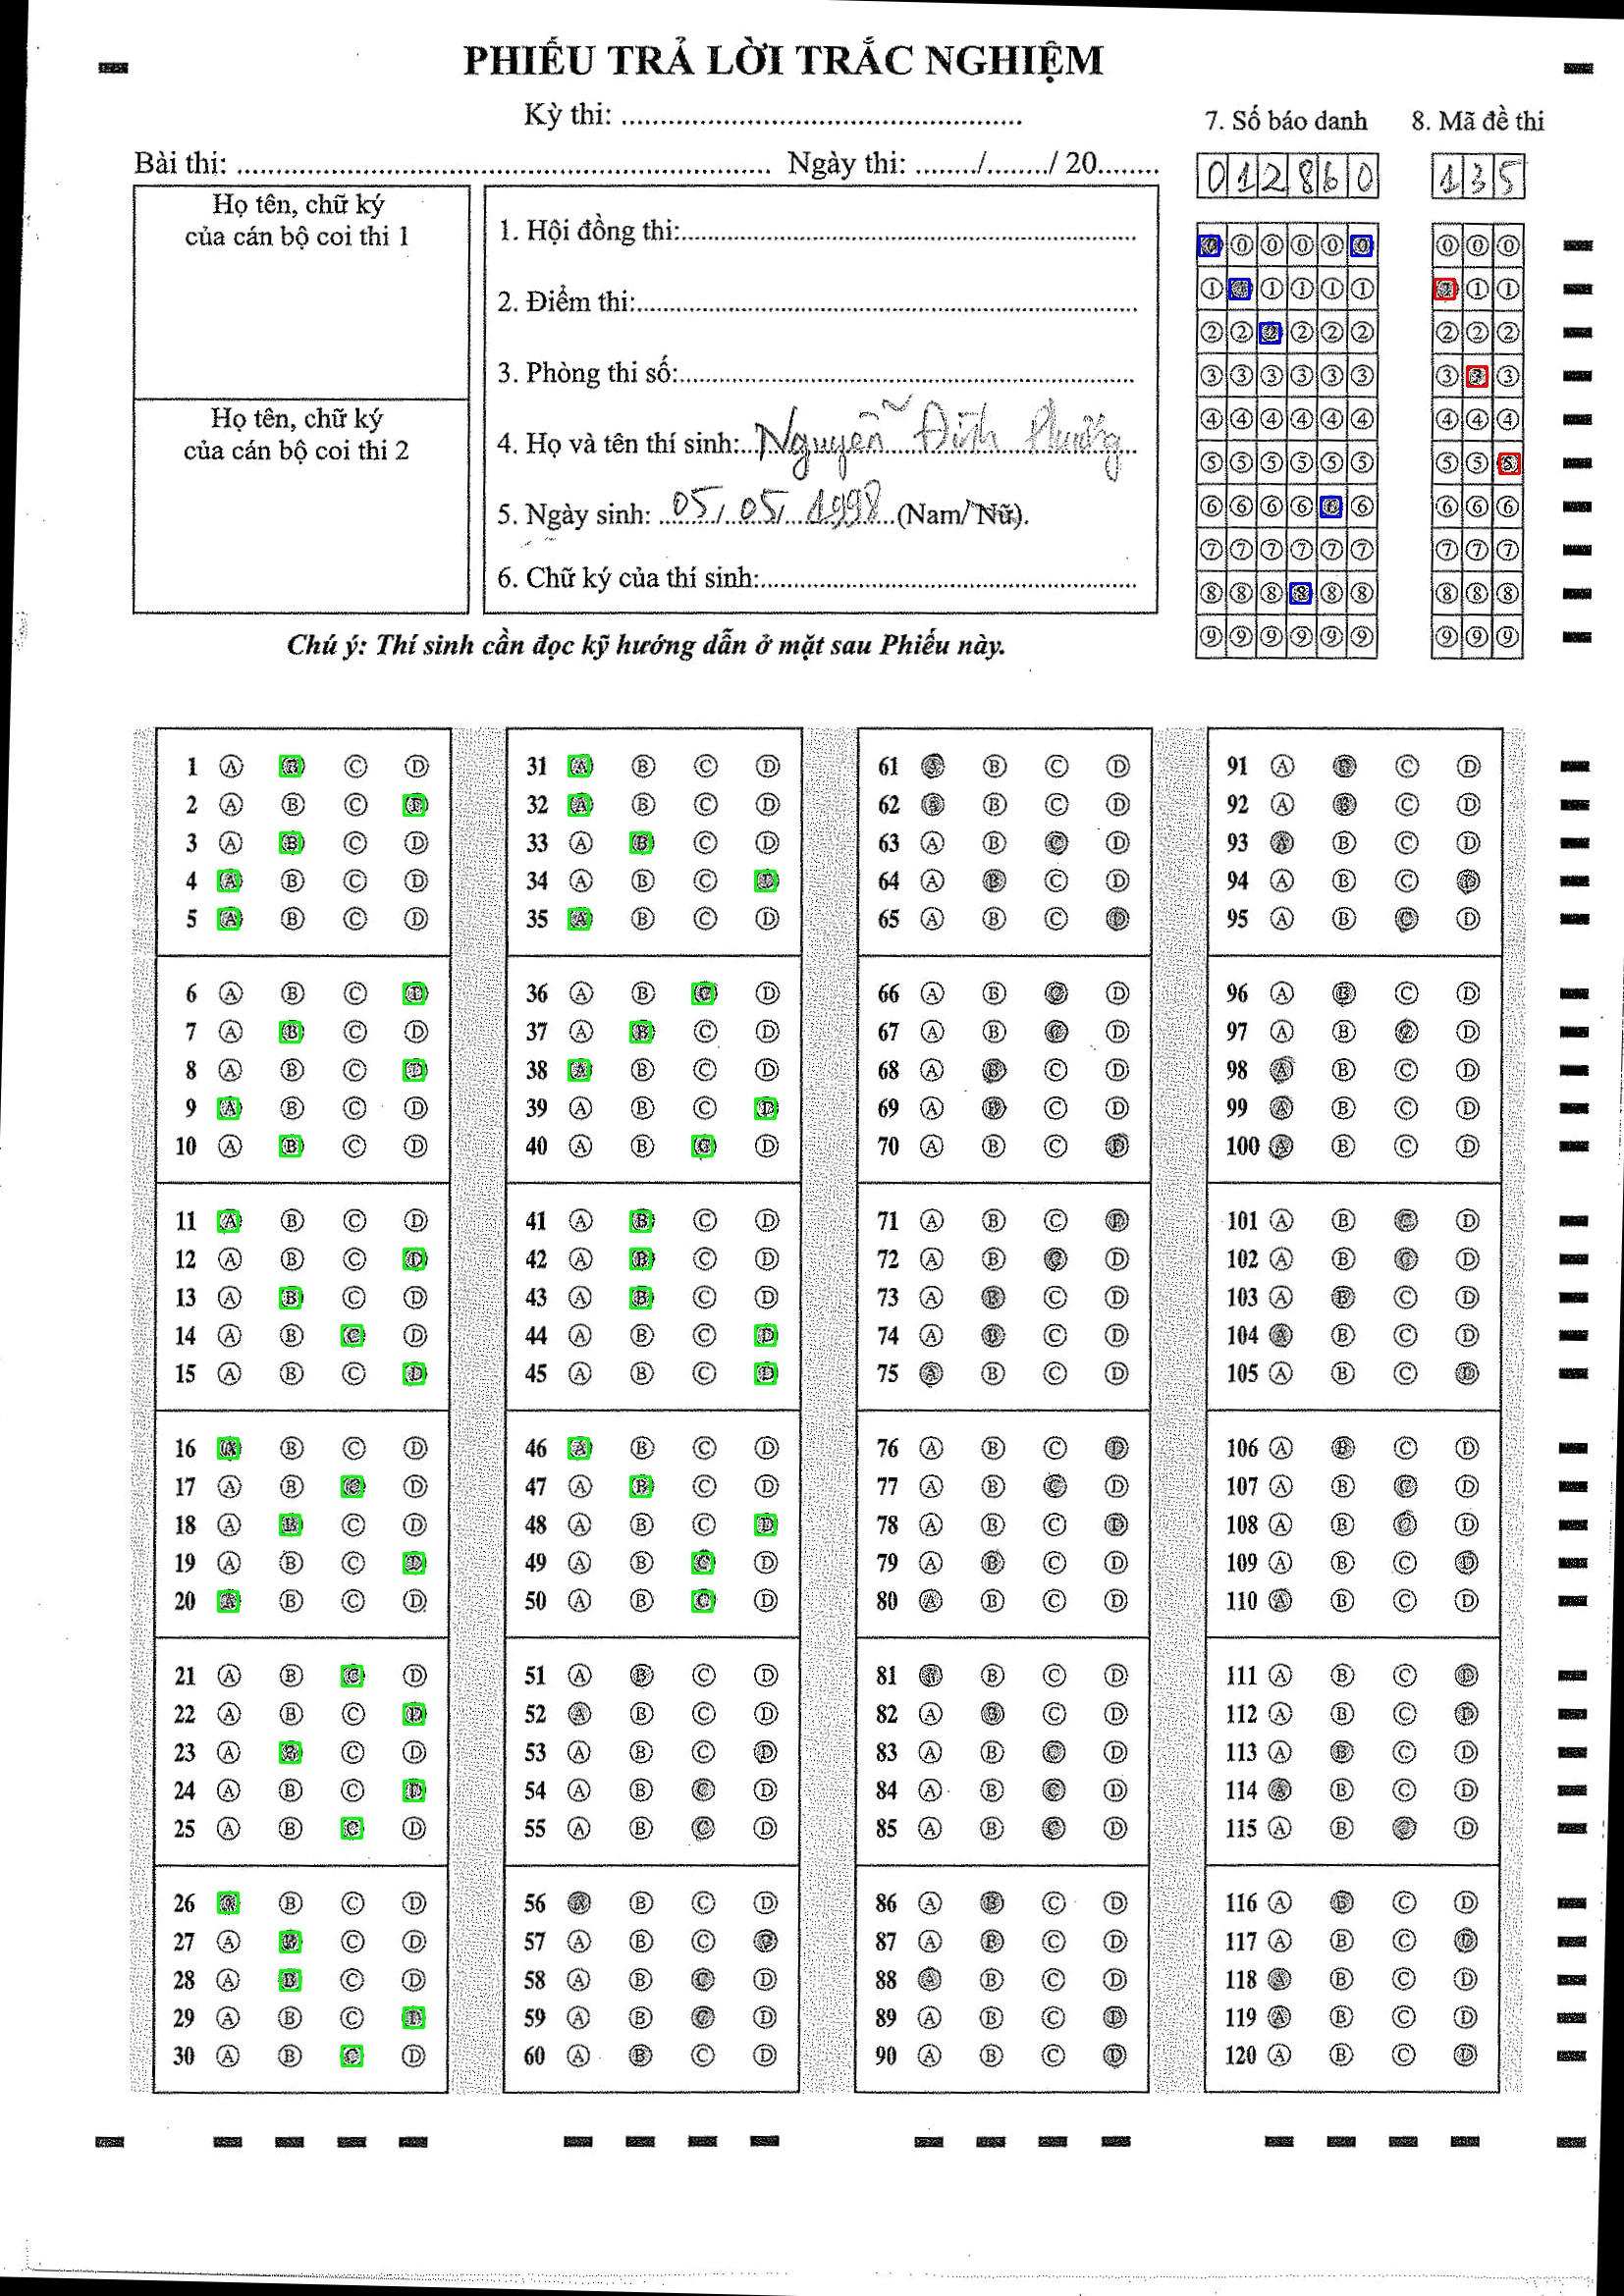 PHIẾU TRẢ LỜI TRẮC NGHIỆM
Kỳ thi: ....................................................
Bài thi: ..................................................................... Ngày thi: ......../......../ 20........
7. Số báo danh
012860
8. Mã đề thi
135
Họ tên, chữ ký
của cán bộ coi thi 1
Họ tên, chữ ký
của cán bộ coi thi 2
1. Hội đồng thi:............................................................
2. Điểm thi:..................................................................
3. Phòng thi số:............................................................
4. Họ và tên thí sinh: Nguyễn Đình Phương
5. Ngày sinh: 05/05/1998 (Nam/Nữ).
6. Chữ ký của thí sinh:.................................................
Chú ý: Thí sinh cần đọc kỹ hướng dẫn ở mặt sau Phiếu này.
0 0 0 0 0 0 0 0 0
1 1 1 1 1 1 1 1 1
2 2 2 2 2 2 2 2 2
3 3 3 3 3 3 3 3 3
4 4 4 4 4 4 4 4 4
5 5 5 5 5 5 5 5 5
6 6 6 6 6 6 6 6 6
7 7 7 7 7 7 7 7 7
8 8 8 8 8 8 8 8 8
9 9 9 9 9 9 9 9 9
1 A B C D
2 A B C D
3 A B C D
4 A B C D
5 A B C D
6 A B C D
7 A B C D
8 A B C D
9 A B C D
10 A B C D
11 A B C D
12 A B C D
13 A B C D
14 A B C D
15 A B C D
16 A B C D
17 A B C D
18 A B C D
19 A B C D
20 A B C D
21 A B C D
22 A B C D
23 A B C D
24 A B C D
25 A B C D
26 A B C D
27 A B C D
28 A B C D
29 A B C D
30 A B C D
31 A B C D
32 A B C D
33 A B C D
34 A B C D
35 A B C D
36 A B C D
37 A B C D
38 A B C D
39 A B C D
40 A B C D
41 A B C D
42 A B C D
43 A B C D
44 A B C D
45 A B C D
46 A B C D
47 A B C D
48 A B C D
49 A B C D
50 A B C D
51 A B C D
52 A B C D
53 A B C D
54 A B C D
55 A B C D
56 A B C D
57 A B C D
58 A B C D
59 A B C D
60 A B C D
61 A B C D
62 A B C D
63 A B C D
64 A B C D
65 A B C D
66 A B C D
67 A B C D
68 A B C D
69 A B C D
70 A B C D
71 A B C D
72 A B C D
73 A B C D
74 A B C D
75 A B C D
76 A B C D
77 A B C D
78 A B C D
79 A B C D
80 A B C D
81 A B C D
82 A B C D
83 A B C D
84 A B C D
85 A B C D
86 A B C D
87 A B C D
88 A B C D
89 A B C D
90 A B C D
91 A B C D
92 A B C D
93 A B C D
94 A B C D
95 A B C D
96 A B C D
97 A B C D
98 A B C D
99 A B C D
100 A B C D
101 A B C D
102 A B C D
103 A B C D
104 A B C D
105 A B C D
106 A B C D
107 A B C D
108 A B C D
109 A B C D
110 A B C D
111 A B C D
112 A B C D
113 A B C D
114 A B C D
115 A B C D
116 A B C D
117 A B C D
118 A B C D
119 A B C D
120 A B C D